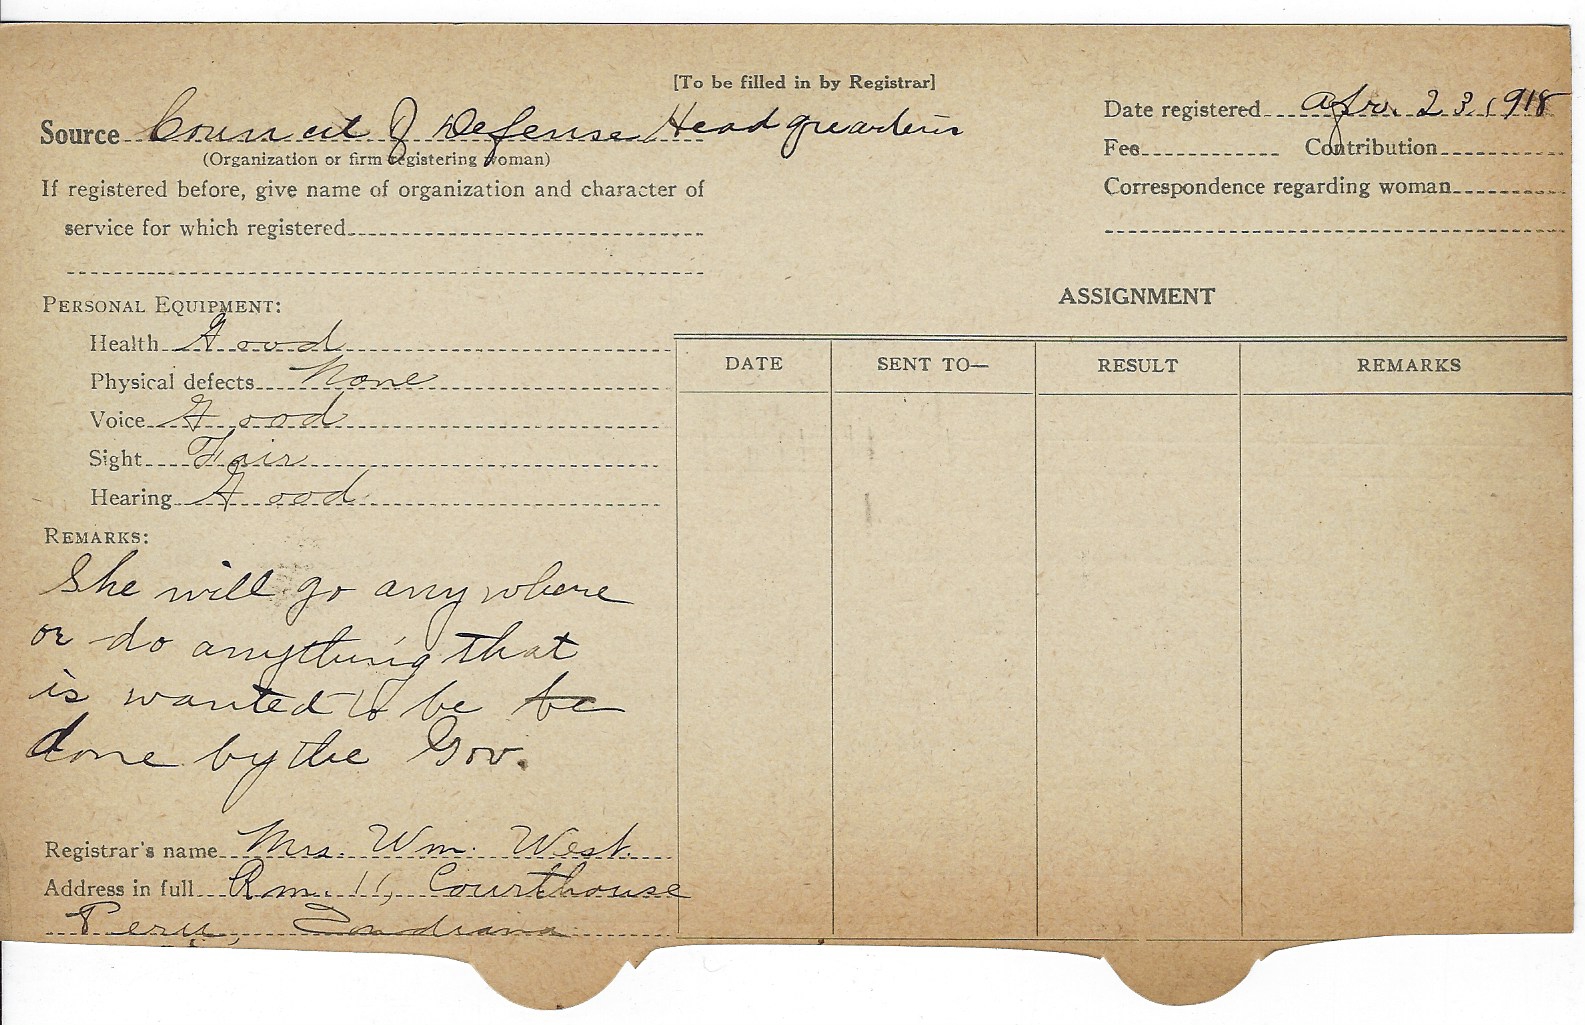 [To be filled in by Registrar]
Source Council of Defense Headquarters
(Organization or firm registering woman)
If registered before, give name of organization and character of
service for which registered
Date registered Apr. 23, 1918
Fee Contribution
Correspondence regarding woman
PERSONAL EQUIPMENT:
Health Good
Physical defects None
Voice Good
Sight Fair
Hearing Good
REMARKS:
She will go anywhere
or do anything that
is wanted to be be
done by the Gov.
Registrar's name Mrs. Wm. West.
Address in full Rm. 11, Courthouse
Peru, Indiana
ASSIGNMENT
DATE SENT TO— RESULT REMARKS